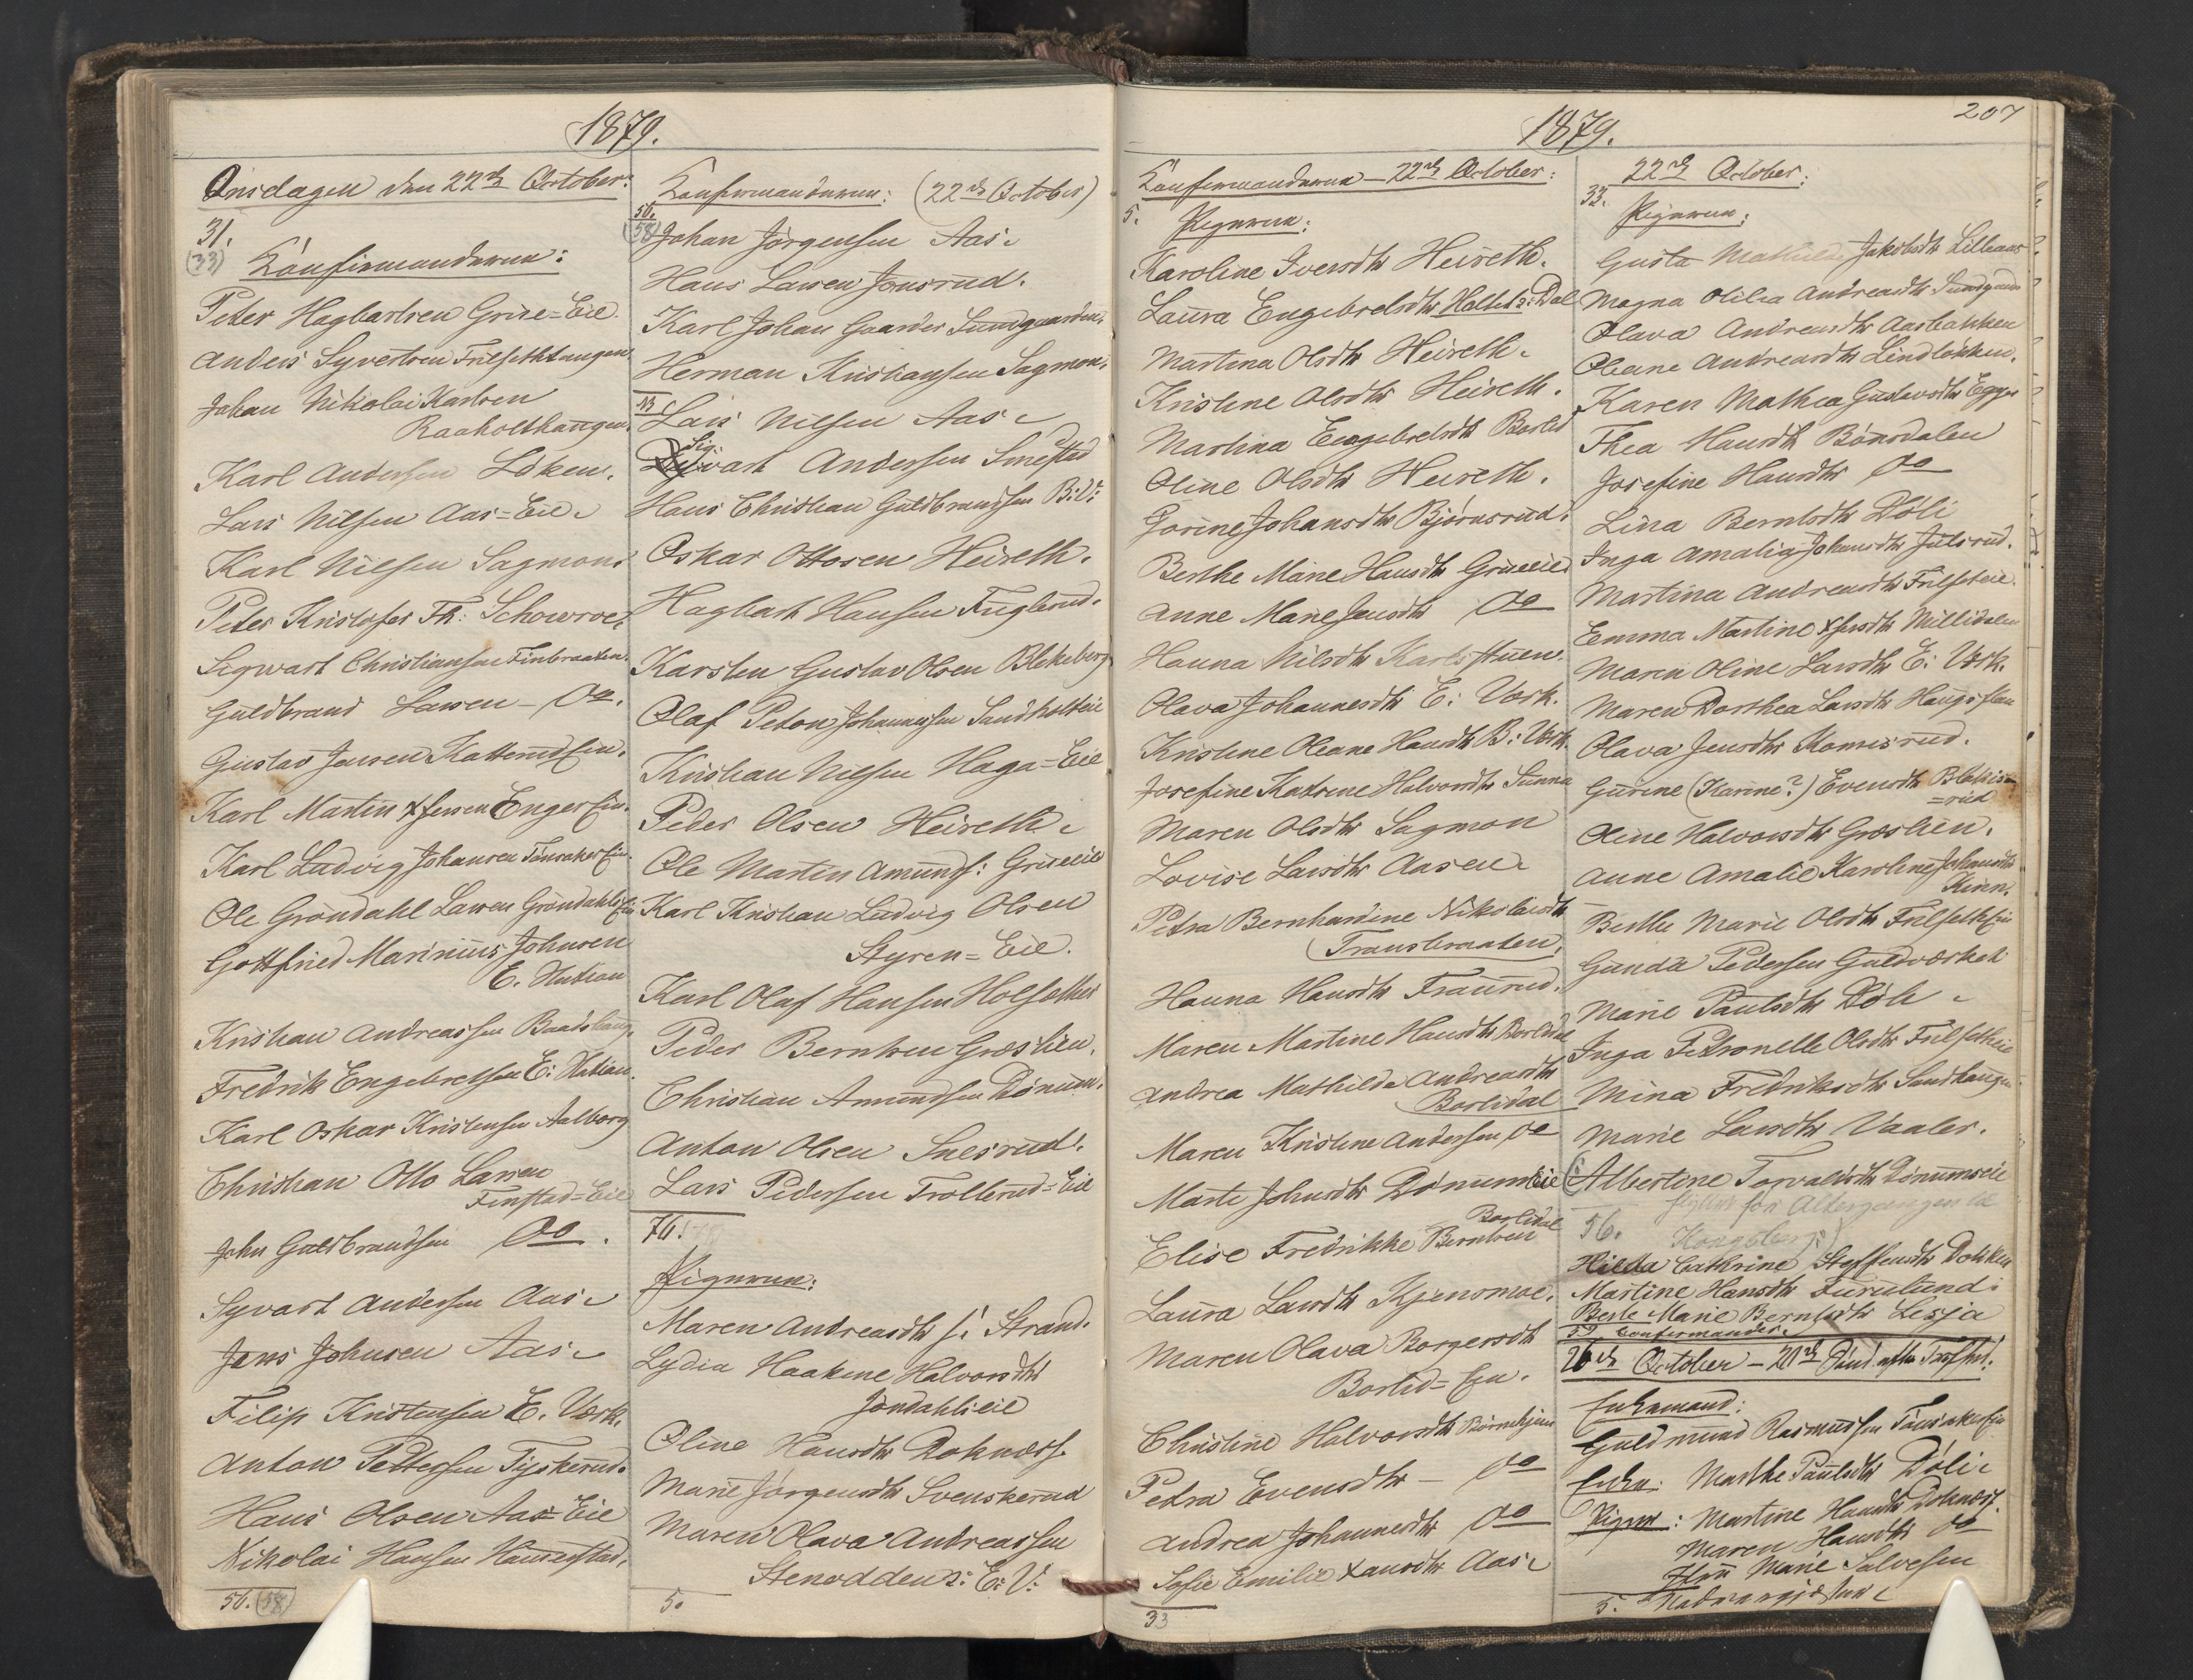 1879.
Onsdagen den 22de October:
31.
(33) Confirmanderne:
Peter Hagbartsen Grue=Eie.
Anders Syvertsen Fulsethhaugen
Johan Nikolai Karlsen
Raaholthaugen
Karl Andersen Løken.
Lars Nilsen Aas=Eie.
Karl Nilsen Sagmoen
Peter Kristofer Th. Schowroe.
Sigwart Christiansen Finbraaten.
Guldbrand Larsen - Do.
Gustav Jensen Katterud Ein.
Karl Martin Jensen Enger Ein.
Karl Ludvig Johansen Tønsaker Ein.
Ole Grøndahl Larsen Grøndahls Ein
Gottfried Marinius Johnsen
E. Station
Kristian Andreassen Baadshaug.
Fredrik Engebretsen E: Station.
Karl Oskar Kristensen Aalborg
Christian Otto Larsen
Finstad=Eie
John Guldbrandsen Do.
Syvart Andersen Aas.
Jens Johnsen Aas.
Filip Kristensen E. Værk.
Anton Pettersen Tyskerud.
Hans Olsen Aas=Eie
Nikolai Hansen Hammerstad.
56. (58)
Confirmanderne: (22de October)
56.
(58) Johan Jørgensen Aas.
Hans Larsen Jønsrud.
Karl Johan Gaarder Sundgaarden.
Herman Kristiansen Sagmon.
Lars Nilsen Aas.
Sig
vart Andersen Smestad
Hans Christian Guldbrandsen B: V:
Oskar Ottosen Heiseth.
Hagbart Hansen Fuglerud.
Karsten Gustav Olsen Blekeberg
Olaf Peton Johannessen Sandholteie
Kristian Nilsen Haga=Eie
Peder Olsen Heiseth.
Ole Martin Amunds: Grueeie
Karl Kristian Ludvig Olsen
Styren=Eie.
Karl Olaf Hansen Holsæther
Peder Berntsen Græslien.
Christian Amundsen Dønum.
Anton Olsen Snesrud.
Lars Pedersen Trollerud=Eie
76.
Pigerne:
Maren Andreasdtr s: Strand.
Lydia Haakine Halvorsdtr
Jøndahlseie
Oline Hansdtr Doknæss.
Marie Jørgensdtr Svenskerud
Maren Olava Andreassen
Stenodden s: E: V:
5.
1879.
207
Confirmanderne - 22de October:
5. Pigerne:
Karoline Iversdtr Heiseth.
Laura Engebretsdtr Holtet s: Dal
Martina Olsdtr Heiseth.
Kristine Olsdtr Heiseth.
Martina Engebretsdtr Borlid
Oline Olsdtr Heiseth.
Jorine Johansdtr Bjørnsrud.
Berthe Marie Hansdtr Grueeie
Anne Marie Jensdtr Do
Hanna Nilsdtr Karlsstuen.
Olava Johannesdtr E: Værk.
Kristine Oleane Hansdtr B: Værk.
Josefine Katrine Halvorsdtr Sunna
Maren Olsdtr Sagmon
Lovise Larsdtr Aasen.
Petra Bernhardine Nikolaidtr
Transbraaten.
Hanna Hansdtr Traurud.
Maren Martine Hansdtr Borlidal
Andrea Mathilde Andreasdtr
Borlidal
Maren Kristine Andersen Do
Marte Johnsdtr Dønumeie
Borlidal
Elise Fredrikke Berntsen
Laura Larsdtr Kjensmoe.
Maren Olava Borgersdtr
Borlid=Ein.
Christine Halvorsdtr Børnehjem
Petra Evensdtr - Do
Andrea Johannesdtr Do
Sofie Emilie Hansdtr Aas.
33
22de October:
33. Pigerne:
Gusta Mathilde Jakobsdtr Lilleaas
Magna Otilia Andreasdtr Sundgaard
Olava Andreasdtr Aasbakken
Oleane Andreasdtr Lindløkken.
Karen Mathea Gustavsdtr Egge
Thea Hansdtr Bønsdalen
Josefine Hansdtr Do
Lina Berntsdtr Døli
Inga Amalia Johansdtr Julsrud.
Martina Andreasdtr Fulseteie.
Emma Martine Jensdtr Nillidalen
Maren Oline Larsdtr E: Værk.
Maren Dorthea Larsdtr Haugsslaa
Olava Jensdtr Komisrud.
Gurine (Karine?) Evensdtr Blekis
=rud
Oline Halvorsdtr Græslien.
Anne Amalie Karoline Johansdtr
Kinn.
Berthe Marie Olsdtr Fulseth Ein
Gunda Pedersen Guldværket
Marie Paulsdtr Døli.
Inga Petronelle Olsdtr Fulsetheie
Mina Fredriksdtr Sandhaugen
Marie Larsdtr Vaaler.
(Albertine Torvaldsdtr Dønumseie
flyttet før Altergangen til
56. Kongsberg)
Hilda Cathrine Steffensdtr Dokken
Martine Hansdtr Furulund.
Berte Marie Berntsdtr Lesja
59 Confirmander.
26de October - 20de Sønd. efter Trefhed.
Enkemand:
Guldmund Rasmussen Tønsaker Ein
Enke: Marthe Paulsdtr Døli.
Piger: Martine Hansdtr Doknæs.
Maren Hansdtr Do
Marie Salvesen
5.